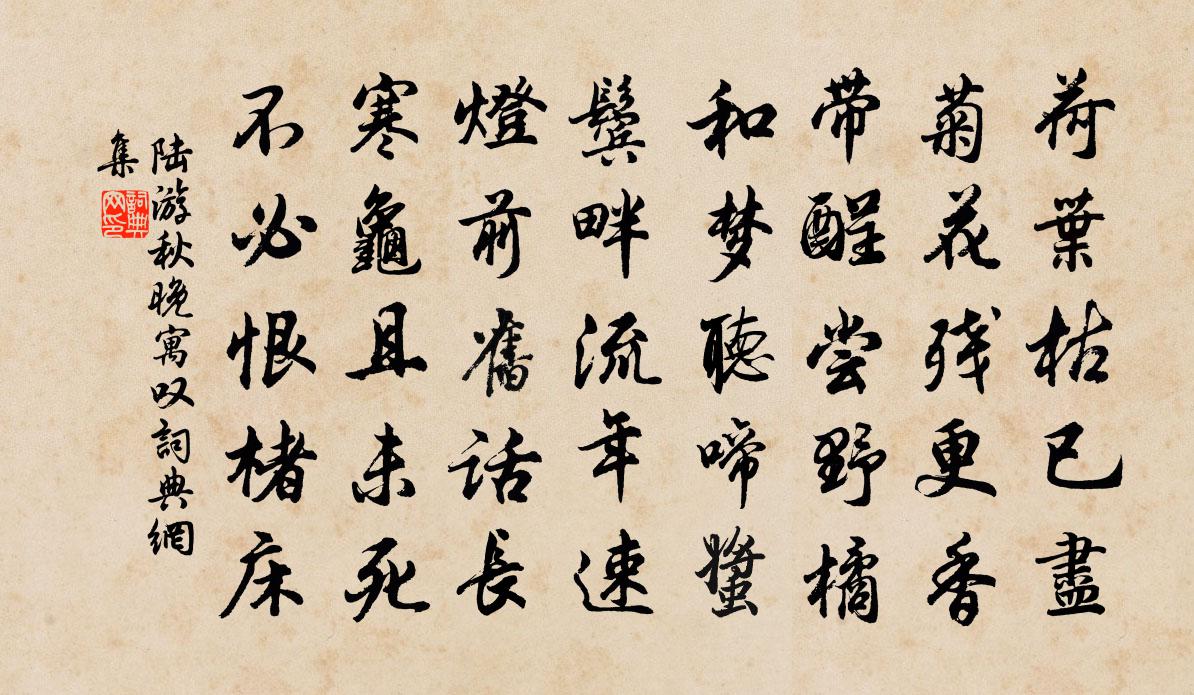 荷葉枯已盡
菊花残更香
带醒尝野橘
和梦聽啼螿
鬓畔流年速
燈前舊话長
寒龜且未死
不必恨楮床
陆游秋晚寓叹詞典網
集
詞典
网印